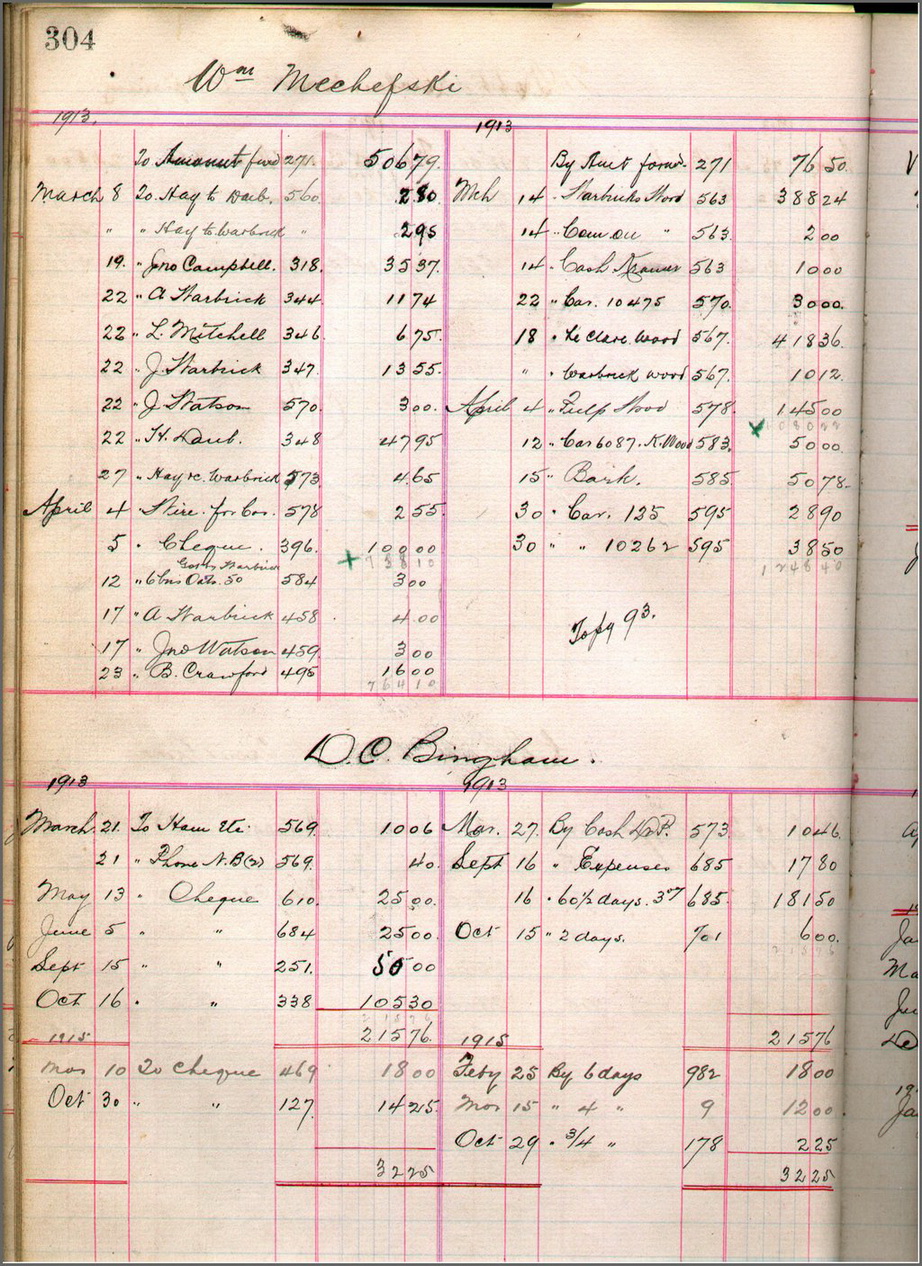 304
Wm Mechefski
1913. 1913
To Amount fwd 271. 506 79. By Amt forwd. 271 76 50.
March 8 To Hay to Warb. 560. 2 80. Mch 14 " Warbricks Wood 563 388 24
" " Hay to Warbrick " 2 95 14 " Com on " 563. 2 00
19. " Jno Campbell. 318. 35 37. 14 " Cash 563 10 00
22 " A Warbrick 344. 11 74 22 " Car. 10475 570. 30 00.
22 " L. Mitchell 346. 6 75. 18 " Le Clare Wood 567. 418 36.
22 " J Warbrick 347. 13 55. " " Warbrick Wood 567. 10 12.
22 " J Watson 570. 3 00. April 4 " Pulp Wood 578. 145 00
22 " H. Daub. 348 47 95 12 " Car 6087. K. Wood 583. 50 00.
27 " Hay rc. Warbrick 573 4.65 15 " Bark. 585. 50 78.
April 4 " Wire for Car. 578 2 55. 30 " Car. 125 595 28 90
5 " Cheque. 396. 100 00 30 " " 10262 595 38 50
738 10 1248 40
12 " 6 bus Oats. 50 584 3 00
17 " A Warbrick 458 4.00 To pg 93.
17 " Jno Watson 459. 3 00
23 " B. Crawford 495 16 00
764 10
D. C. Bingham.
1913 1913
March 21. To Ham Etc. 569. 10 06 Mar. 27. By Cash 573. 10 46
21 " Phone N.B (2) 569. 40. Sept 16 " Expenses 685 17 80
May 13 " Cheque 610. 25 00. 16 " 60½ days. 3 685. 181 50
June 5 " " 684 25 00. Oct 15 " 2 days. 701 6 00.
Sept 15 " " 251. 50 00
Oct 16 " " 338 105 30
215 76
1915 215 76. 1915 215 76
Mar 10 To Cheque 469 18 00 Feby 25 By 6 days 982 18 00
Oct 30 " " 127. 14 25. Mar 15 " 4 " 9 12 00.
Oct 29 " 3/4 " 178 2 25
32 25 32 25